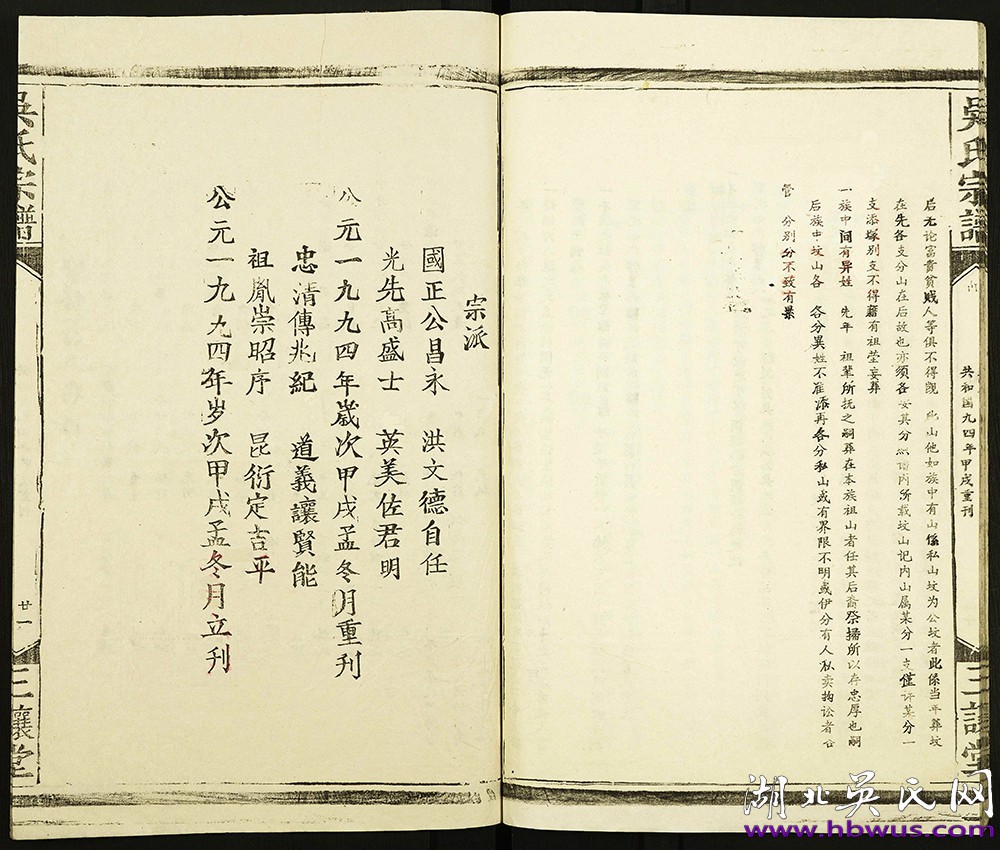 吳氏宗譜
共和国九四年甲戌重刊
三讓堂
后无论富贵贫贱人等俱不得觊 此山他如族中有山係私山坟为公坟者此係当年葬坟
在先各支分山在后故也亦须各安其分 谱内所载坟山记内山属某分一支僅许某分一
支添塚别支不得藉有祖茔妄葬
一族中间有异姓 先年 祖辈所抚之嗣葬在本族祖山者任其后裔祭掃所以存忠厚也嗣
后族中坟山各 各分異姓不准添再各分私山或有界限不明或伊分有人私卖构讼者
管 分别分不致有累
宗派
國正公昌永 洪文德自任
光先高盛士 英美佐君明
公元一九九四年歲次甲戌孟冬月重刊
忠清傳兆紀 道義讓賢能
祖胤崇昭序 昆衍定吉平
公元一九九四年岁次甲戌孟冬月立刊
吳氏宗譜
廿一
三讓堂
湖北吴氏网
www.hbwus.com